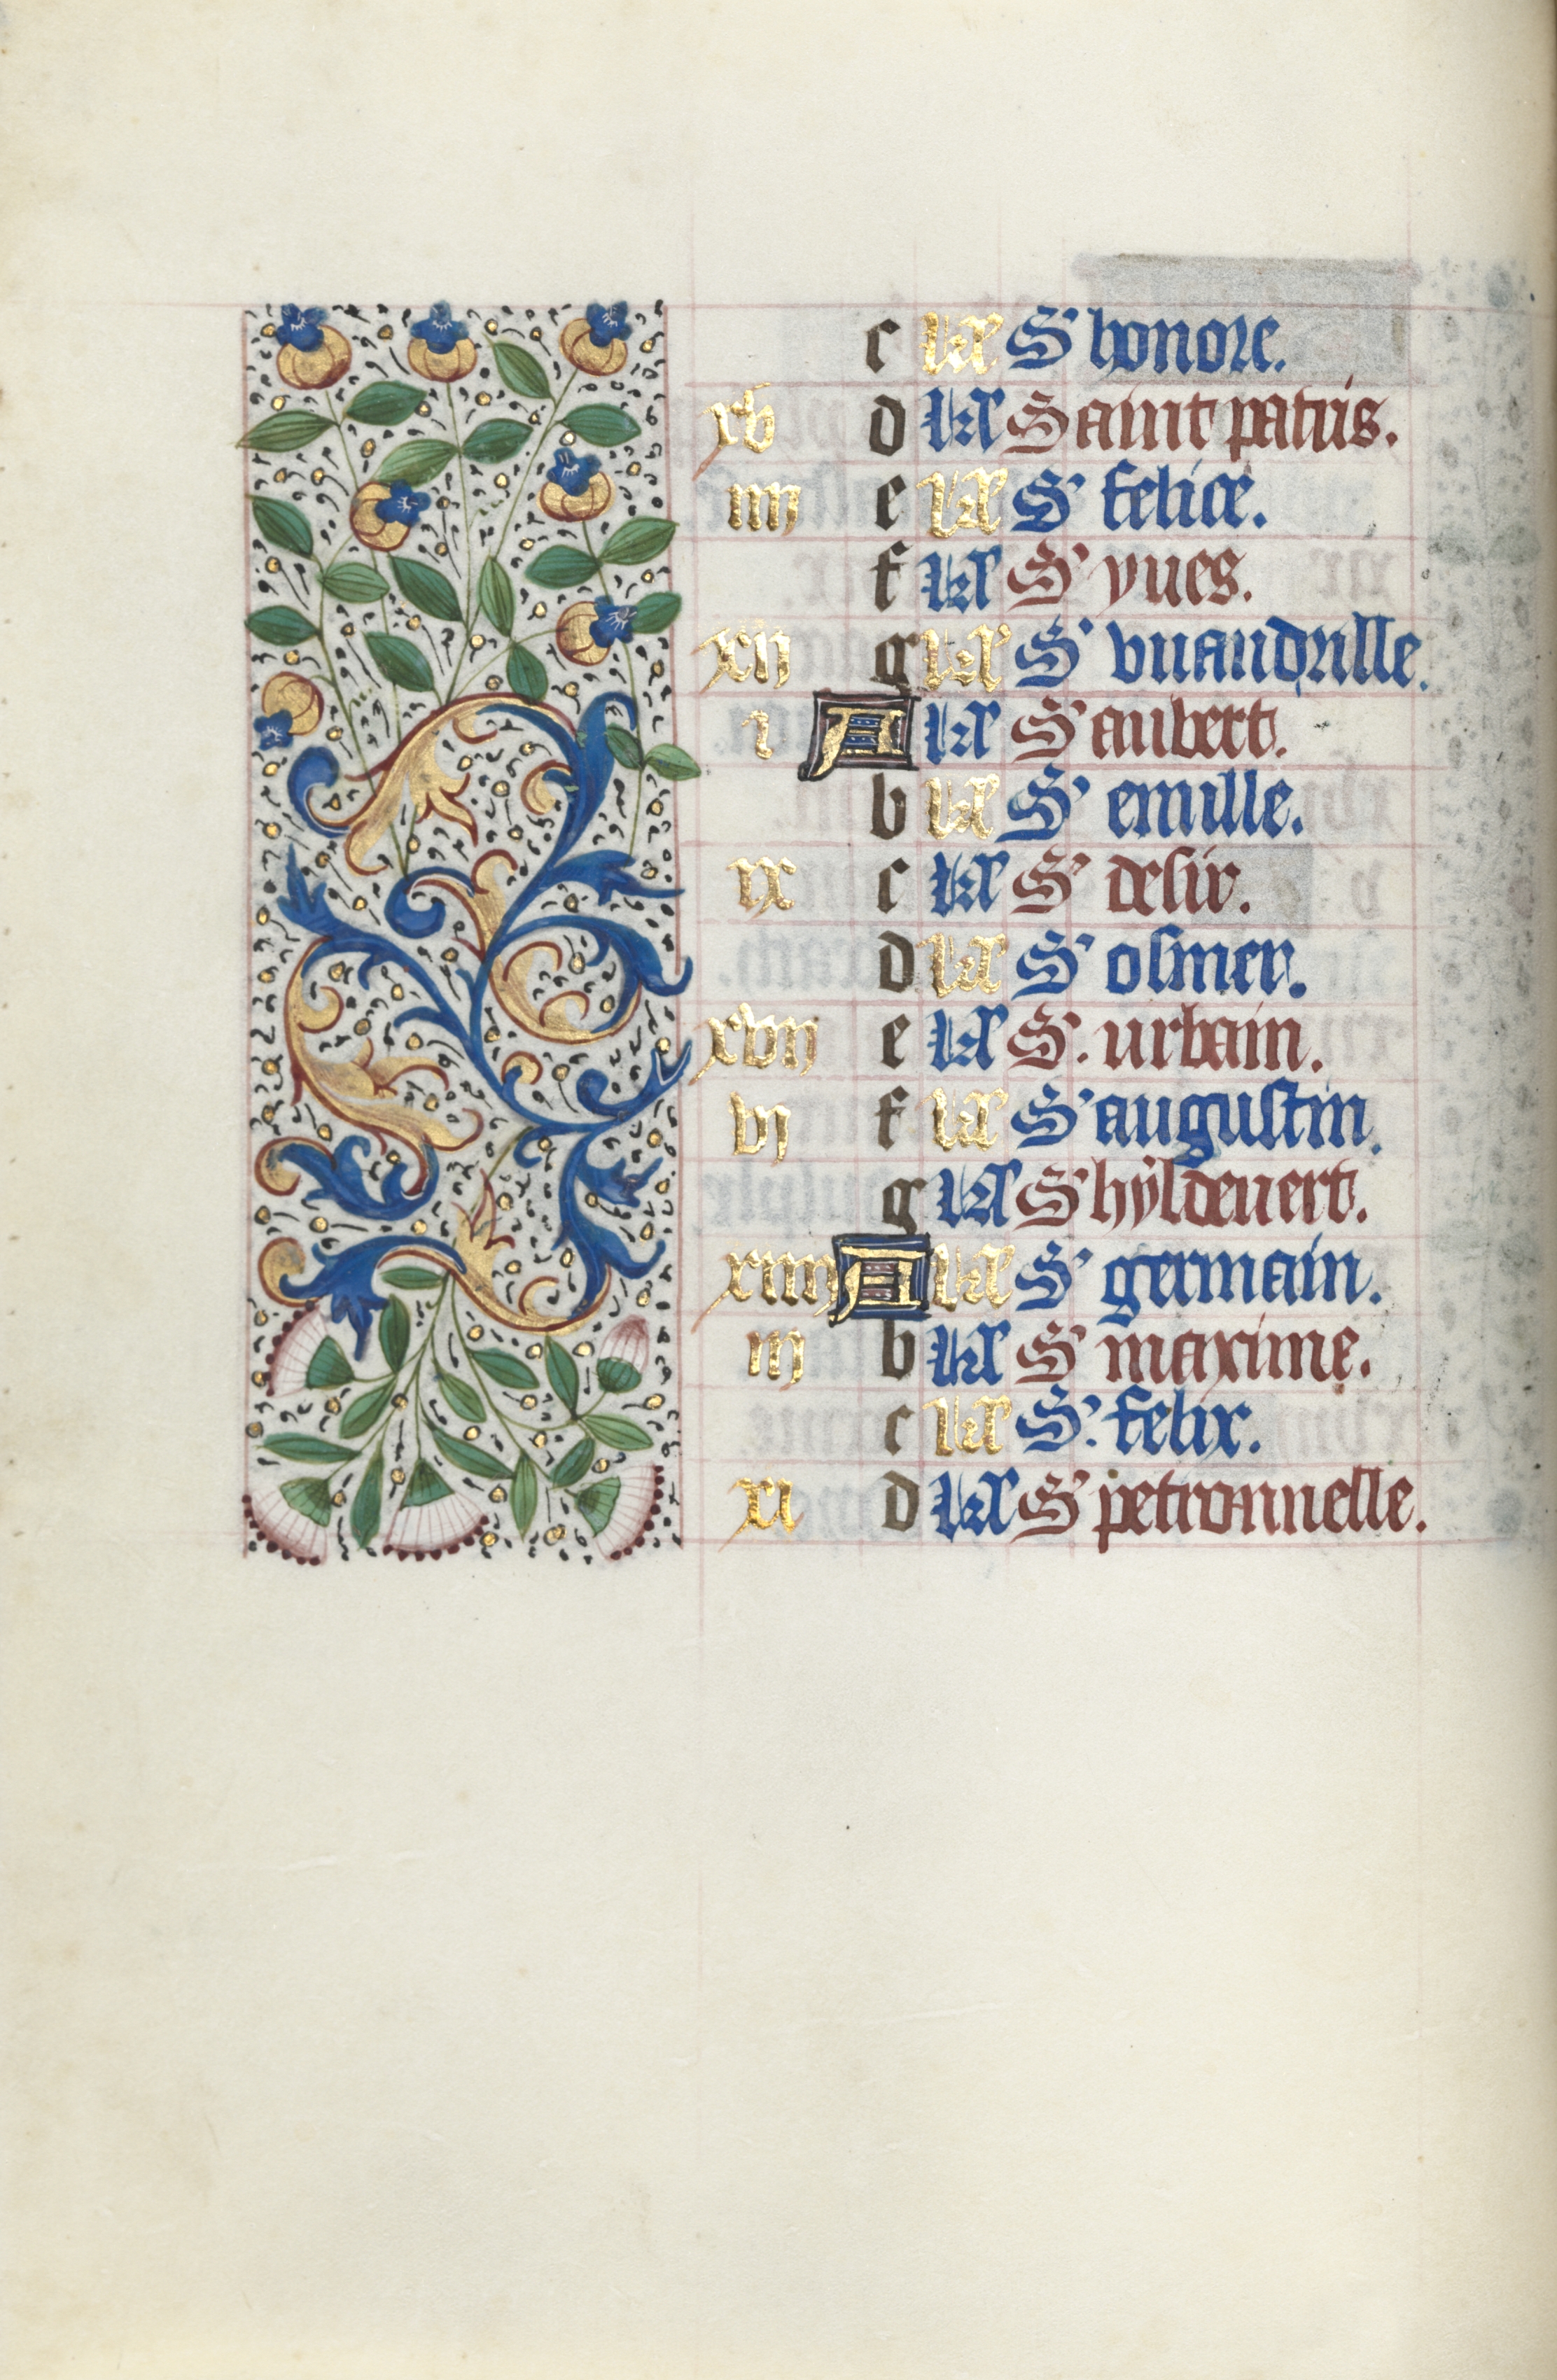 c kl S' honore.
xv d kl Saint patris.
iiij e kl S' felice.
f kl S' yues.
xij g kl S' vuandrille.
i A kl S' aubert.
b kl S' emille.
ix c kl S' desir.
d kl S' osmer.
xvij e kl S. urbain.
vj f kl S' augustin.
g kl S' hyldeuert.
xiiij A kl S' germain.
iij b kl S' maxime.
c kl S. felix.
xi d kl S' petronnelle.